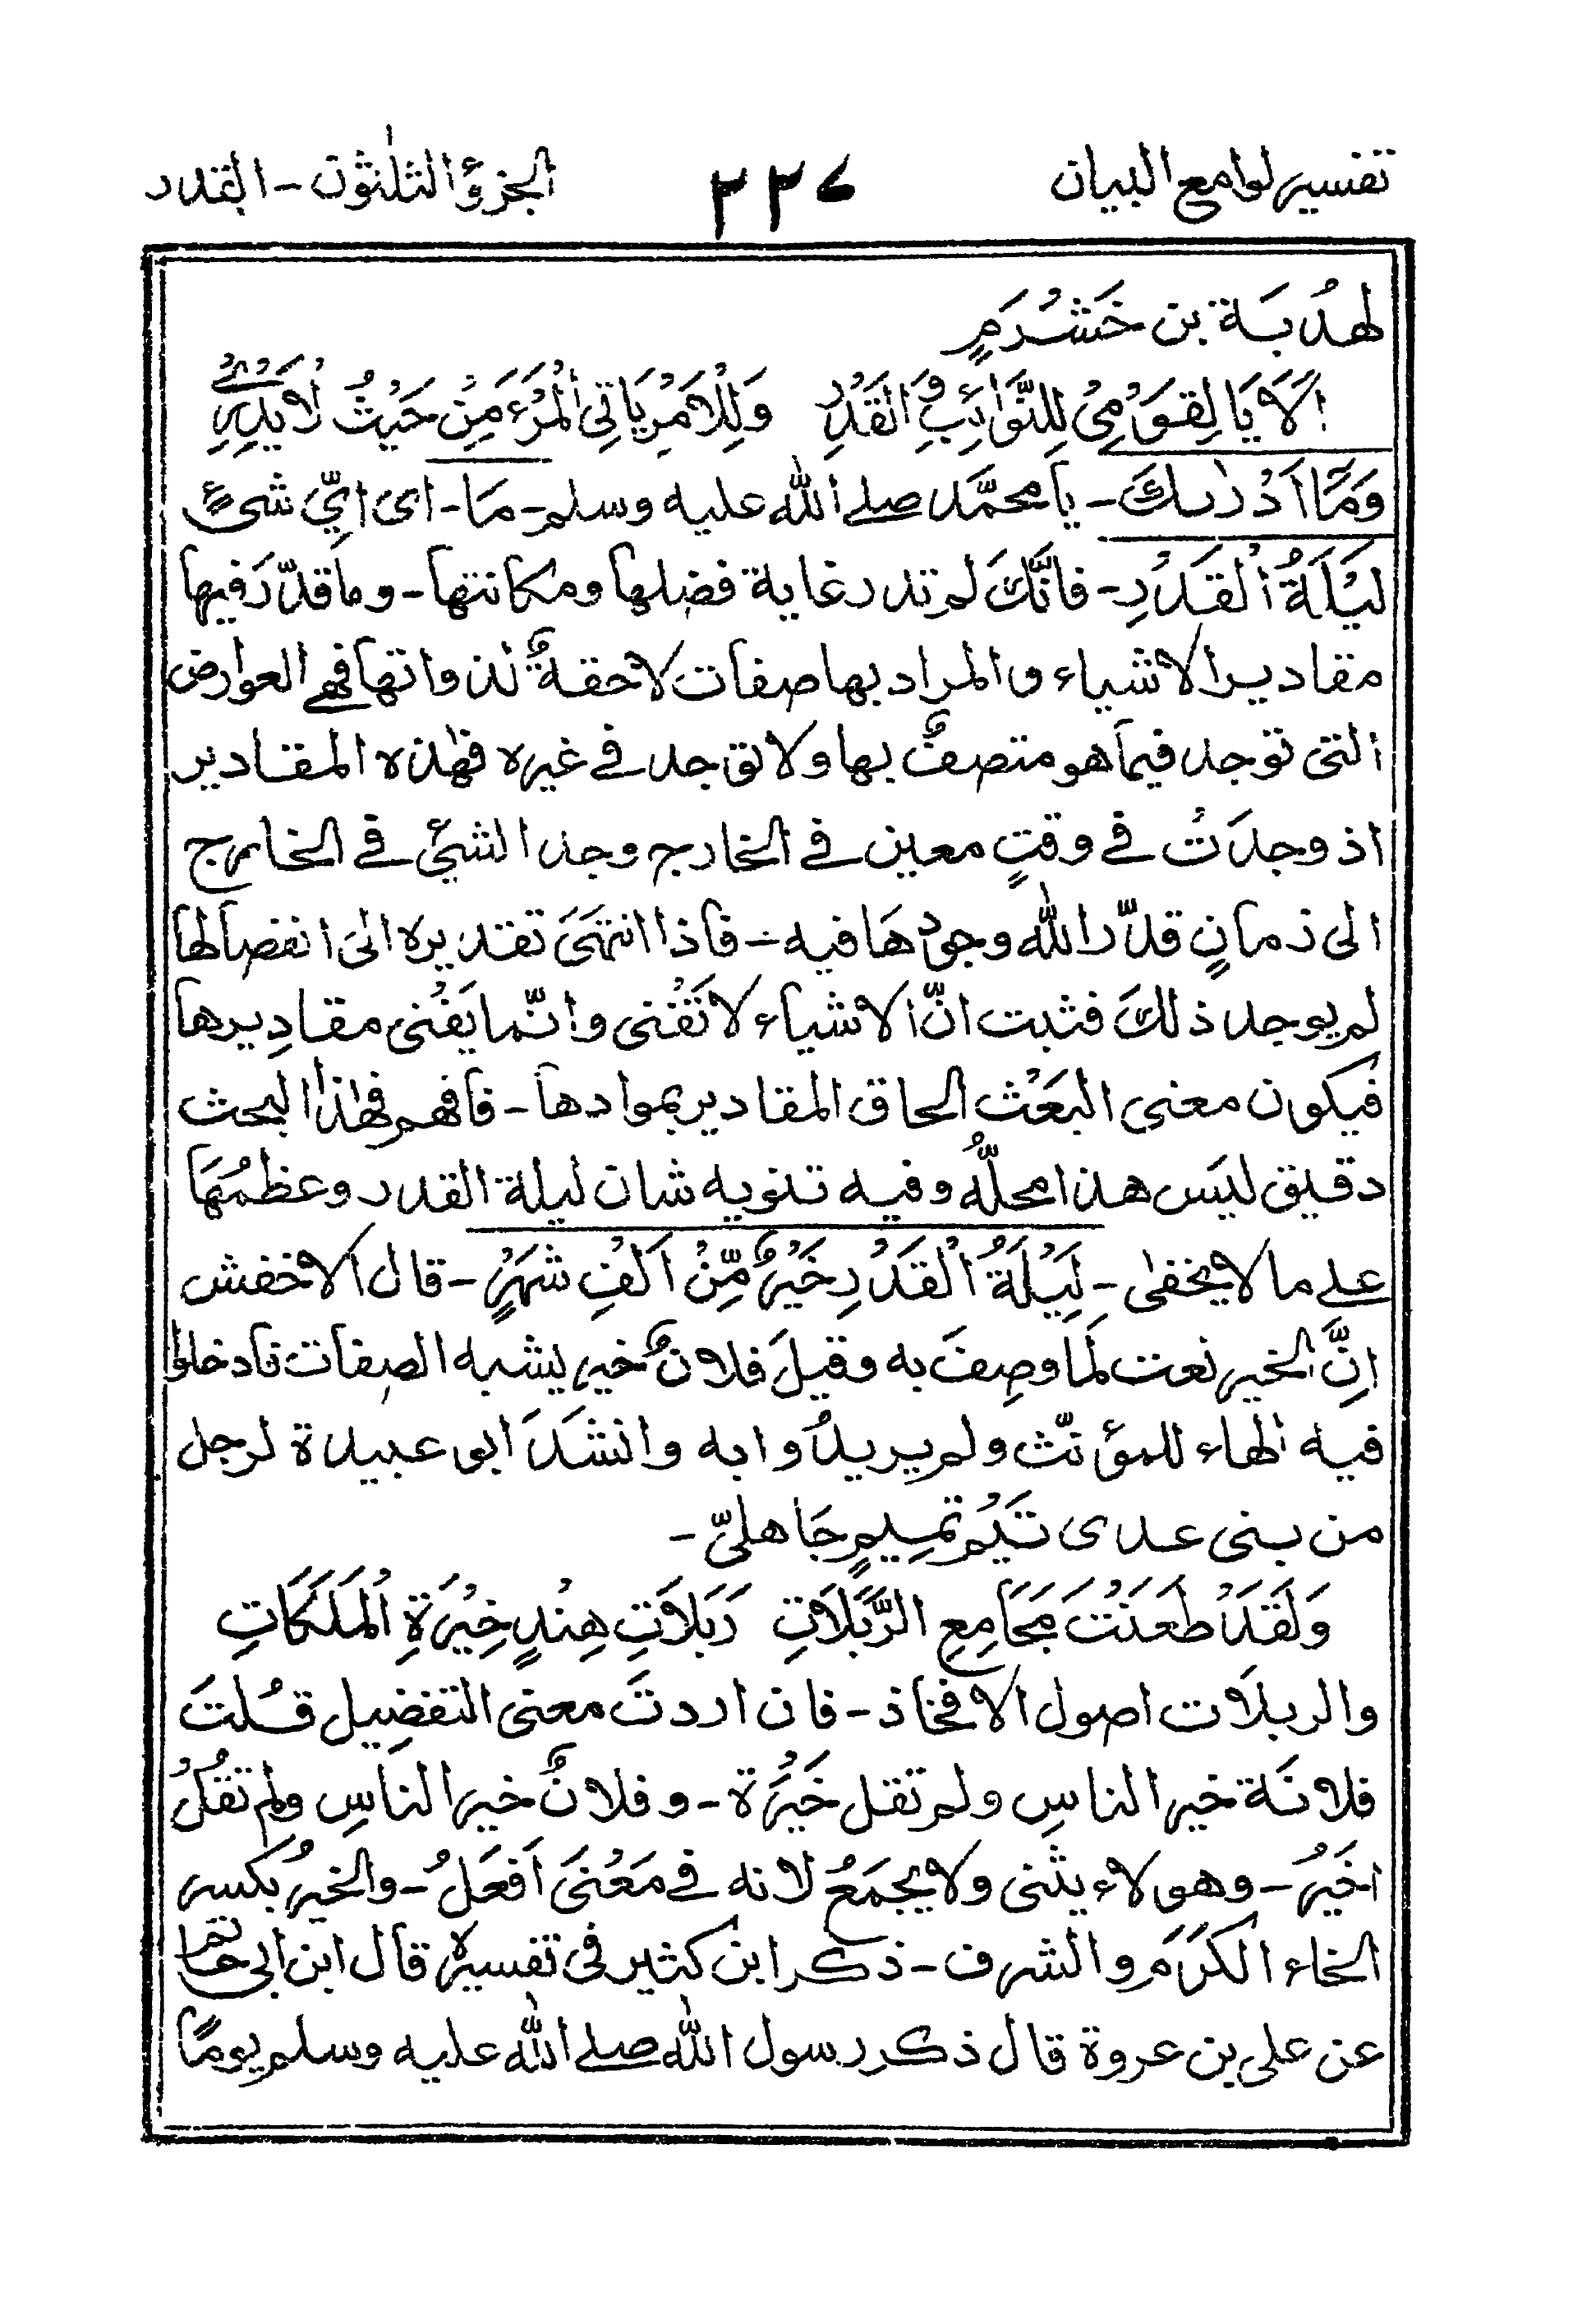 تفسير لوامع البيان ٢٢٧ الجزؤ الثلٰثون - القدر
لهُدبَة بن خَشْرَمٍ
اَلَا يَا لِقَوْمِىْ لِلنَّوَائِبِ وَالْقَدْرِ وَلِلْاَمْرِ يَاتِى الْمَرْءَ مِنْ حَيْثُ لَا يَدْرِىْ
وَمَّا اَدْرٰىكَ - يا محمَّد صلے الله عليه وسلم - مَا - اى اىِّ شئٍ
لَيْلَةُ الْقَدْرِ - فانَّكَ لم تدر غاية فضلها ومكانتها - وما قدّرَ فيها
مقادير الاشياء والمراد بها صفات لاحقةٌ لذواتها فهے العوارض
التى توجد فيما هو متصفٌ بها ولا توجد فے غيره فهٰذه المقادير
اذ وجدَتْ فے وقتٍ معين فے الخارج وجد الشئ فے الخارج
الى زمانٍ قدّر الله وجودهَا فيه - فاذا انتهَىَ تقديره الىٰ انفصالها
لم يوجد ذلكَ فثبت انّ الاشياء لا تَفْنى وانّما يَفْنى مقادِيرها
فيكون معنى البَعْث الحاق المقادير بموادها - فافهم فهٰذا البحث
دقيق ليَس هذا محلّهُ وفيه تنويه شان ليلة القدر وعظمُهَا
علے ما لا يخفىٰ - لَيْلَةُ الْقَدْرِ خَيْرٌ مِّنْ اَلْفِ شَهْرٍ - قال الاخفش
اِنَّ الخير نعت لَما وصِفَ به وقيلَ فلانٌ خير يشبه الصفات فادخلوا
فيه الهاء للمؤنّث ولم يريدُوا به وانشَدَ ابو عبيدة لرجل
من بنى عدى تَيْم تمِيمٍ جَاهلىّ -
وَلَقَدْ طَعَنْتَ مَجَامِعِ الرَّبَلَاتِ رَبَلَاتِ هِنْدٍ خِيْرَةِ الْمَلَكَاتِ
والربلَات اصول الافخاذ - فان اردتَ معنى التفضِيل قُلتَ
فلانَة خير الناسِ ولم تقل خَيْرَة - وفلانٌ خير الناسِ ولم تقُلْ
اخَيْرُ - وهو لاء يثنى ولا يجمَعُ لانه فے مَعْنَى اَفعَلُ - والخيرُ بكسر
الخاء الكَرَمَ والشرف - ذكر ابن كثير فى تفسيرہ قال ابن ابى حاتم
عن على بن عروة قال ذكر رسول الله صلے الله عليه وسلم يومًا